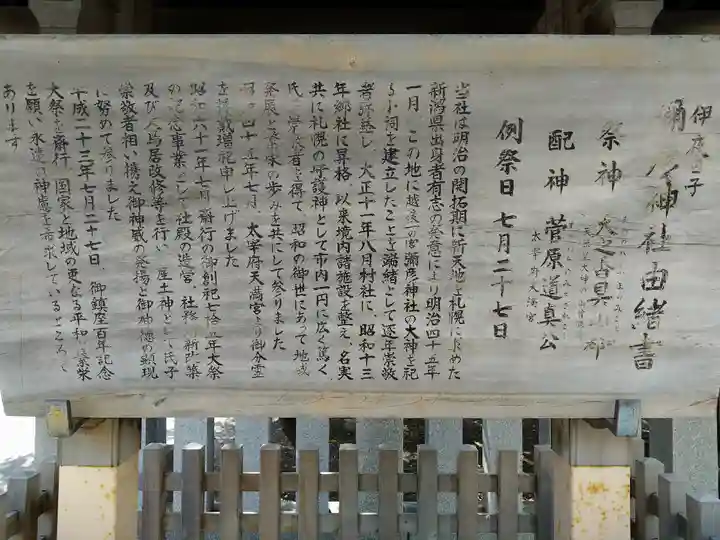 伊夜日子
彌彦神社由緒書
祭神
配神 菅原道真公
太宰府天満宮
例祭日 七月二十七日
当社は明治の開拓期に新天地を札幌に求めた
新潟県出身者有志の発意により明治四十五年
一月 この地に越後一の宮彌彦神社の大神を祀
る小祠を建立したことを端緒として逐年崇敬
者弥熱し 大正十一年八月村社に 昭和十三
年郷社に昇格 以来境内諸施設を整え 名実
共に札幌の守護神として市内一円に広く篤く
氏子崇敬者を得て 昭和の御世にあって地域
発展と 味の歩みを共にして参りました
昭和四十五年七月 太宰府天満宮より御分霊
を 戴増祀申し上げました
昭和六十一年七月 斎行の御創祀七拾五年大祭
の記念事業として社殿の造営 社務 新築
及び 鳥居改修等を行い 産土神として氏子
崇敬者相い携え御神威の発揚と御神徳の顕現
に努めて参りました
平成二十三年七月二十七日 御鎮座百年記念
大祭を斎行 国家と地域の更なる平和 繁栄
を願い 永遠の神恵を希求しているところで
あります